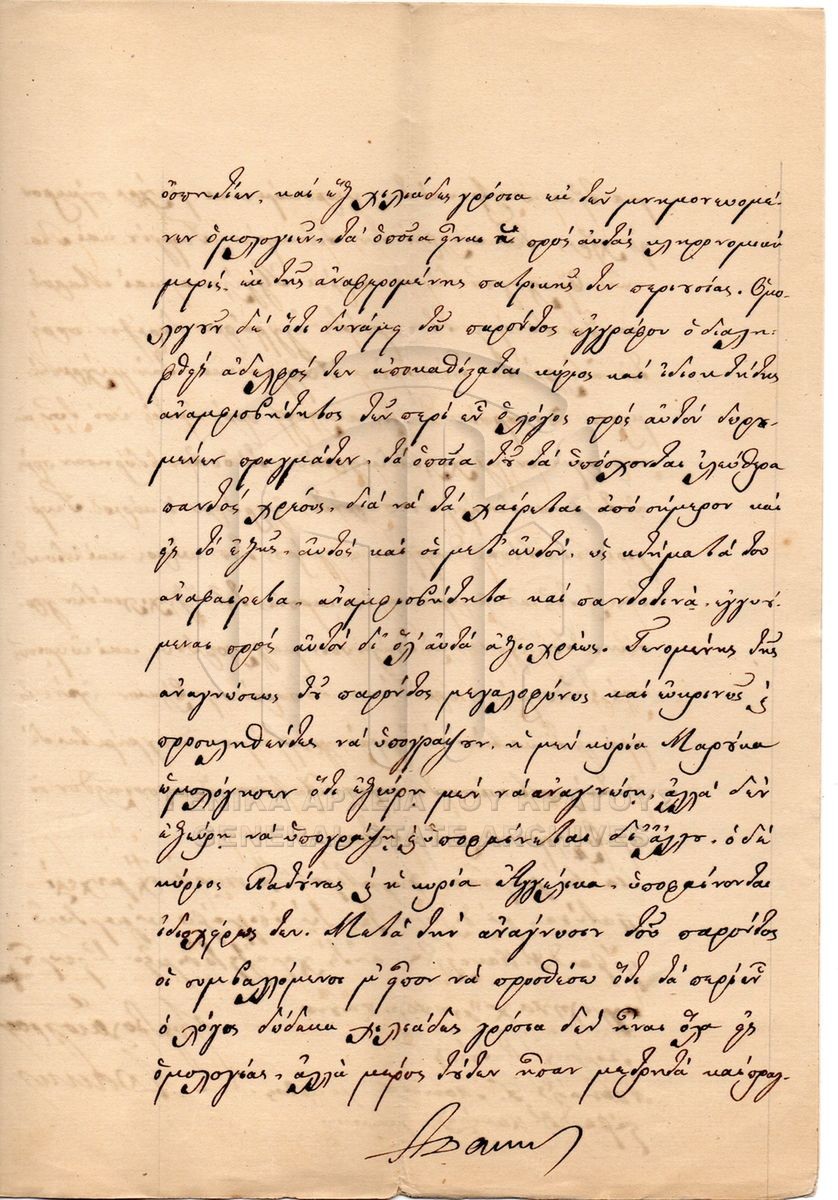 ὁσπητίων, καὶ ἓξ χιλιάδες γρόσια ἐκ τῶν μνημονευομέ-
νων ὁμολογιῶν, τὰ ὁποῖα εἶναι πρὸς αὐτὰς κληρονομικὴ
μερίς, ἐκ τῆς ἀναφερομένης πατρικῆς των περιουσίας. Ὁμο-
λογοῦν δὲ ὅτι δυνάμει τοῦ παρόντος ἐγγράφου ὁ διαλη-
φθεὶς ἀδελφός των ἀποκαθίσταται κύριος καὶ ἰδιοκτήτης
ἀναμφισβήτητος τῶν περὶ ὧν ὁ λόγος πρὸς αὐτὸν
πραγμάτων, τὰ ὁποῖα τοῦ τὰ ὑπόσχονται ἐλεύθερα
παντὸς χρέους, διὰ νὰ τὰ χαίρεται ἀπὸ σήμερον καὶ
εἰς τὸ ἑξῆς, αὐτὸς καὶ οἱ μετ' αὐτόν, ὡς κτήματά του
ἀναφαίρετα, ἀναμφισβήτητα καὶ παντοτινά, ἐγγυώ-
μεναι πρὸς αὐτὸν δι' ὅλ' αὐτὰ ἀξιοχρέως. Γενομένης τῆς
ἀναγνώσεως τοῦ παρόντος μεγαλοφώνως καὶ εὐκρινῶς ἐ
προσκληθέντες νὰ ὑπογράψουν, ἡ μὲν κυρία Μαρούκα
ὡμολόγησεν ὅτι ἐξεύρει μὲν νὰ ἀναγνώσῃ, ἀλλὰ δὲν
ἐξεύρει νὰ ὑπογράψῃ ἐ ὑποσημαίνεται δι' ἄλλου, ὁ δὲ
κύριος Πατύνας ἐ ἡ κυρία Ἀγγέλικα, ὑποσημαίνονται
ἰδιοχείρως των. Μετὰ τὴν ἀνάγνωσιν τοῦ παρόντος
οἱ συμβαλλόμενοι μ' εἶπον νὰ προσθέσω ὅτι τὰ περὶ ὧν
ὁ λόγος δώδεκα χιλιάδες γρόσια δὲν εἶναι ὅλα εἰς
ὁμολογίας, ἀλλὰ μέρος τούτων ἦσαν μετρητὰ καὶ
ΓΕΝΙΚΑ ΑΡΧΕΙΑ ΤΟΥ ΚΡΑΤΟΥΣ
GENERAL STATE ARCHIVES